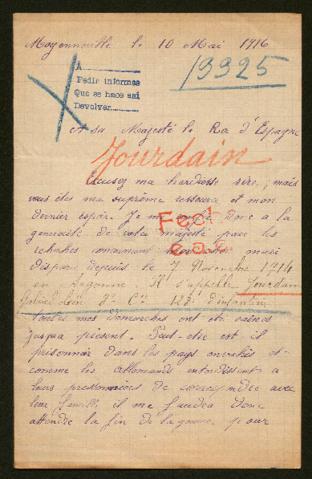 Moyenneville le 10 Mai 1916
19925
A
Pedir informes
Que se hace así
Devolver
A sa Majesté le Roi d'Espagne
Jourdain
Excusez ma hardiesse sire, mais
vous êtes ma suprème ressource et mon
dernier espoir. Je me donc a la
generosité de votre majesté pour les
recherches concernant mon mari
disparu depuis le 7 Novembre 1914
en Argonne. Il s'appelle Jourdain
2e Cie 128e d'infanterie
Toutes mes demarches ont été vaines
jusqua présent. Peut-etre est il
prisonnier dans les pays envahis et
comme les allemands interdissent a
leurs prisonniers de correspondre avec
leur famille, il me faudra donc
attendre la fin de la guerre pour